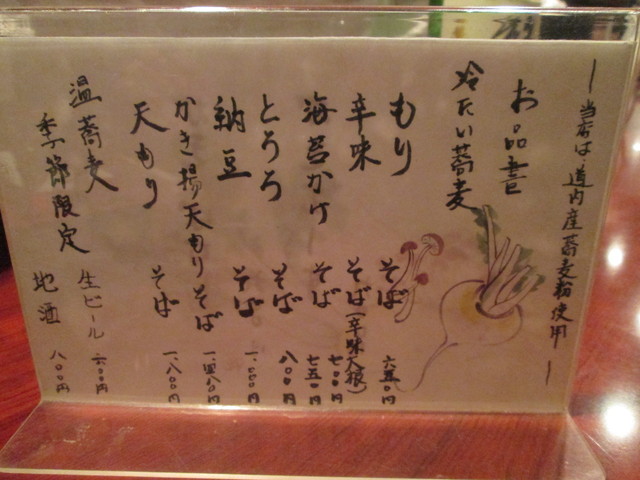 ― 当店は、道内産蕎麦粉使用 ―
お品書
冷たい蕎麦
もり そば 六五〇円
辛味 そば(辛味大根) 七〇〇円
海苔かけ そば 七五〇円
とろろ そば 八〇〇円
納豆 そば 一、〇〇〇円
かき揚天もり そば 一、四八〇円
天もり そば 一、八〇〇円
温蕎麦 生ビール 六〇〇円
季節限定 地酒 八〇〇円